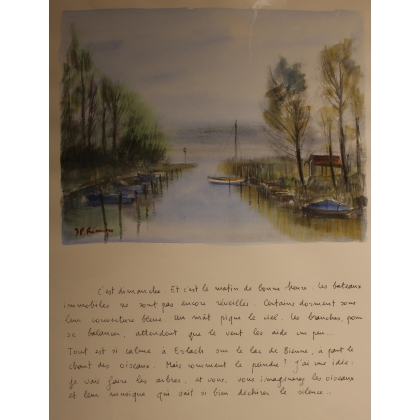 J.P. Rémon
C'est dimanche. Et c'est le matin de bonne heure. Les bateaux
immobiles ne sont pas encore réveillés. Certains dorment sous
leur couverture bleue. Un mât pique le ciel. Les branches, pour
se balancer, attendent que le vent les aide un peu...
Tout est si calme à Erlach sur le lac de Bienne, à part le
chant des oiseaux. Mais comment le peindre ? J'ai une idée :
je vais faire les arbres, et vous, vous imaginerez les oiseaux
et leur musique qui sait si bien déchirer le silence...